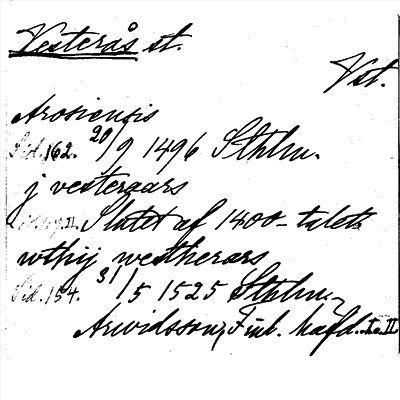 Vesterås st.
Vst.
Arosiensis
Sid. 162. 20/9 1496 Sthlm.
j vestergars
II. Slutet af 1400-talet
wthij westherars
Sid. 154. 31/5 1525 Sthlm.
Arwidsson, Finl. häfd. I. II.